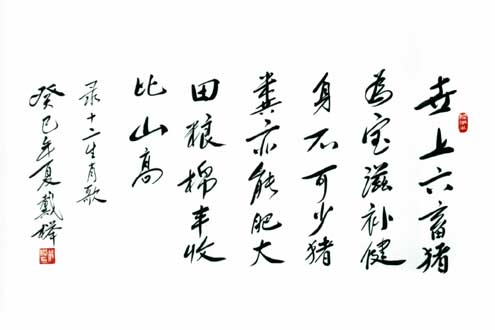 世上六畜猪
为宝滋补健
身不可少猪
粪亦能肥大
田粮棉丰收
比山高
录十二生肖歌
癸巳年夏戴榉